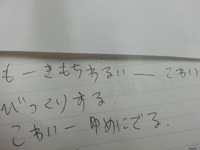 もーきもちわるいー こわい
びっくりする.
こわいー ゆめにでる.